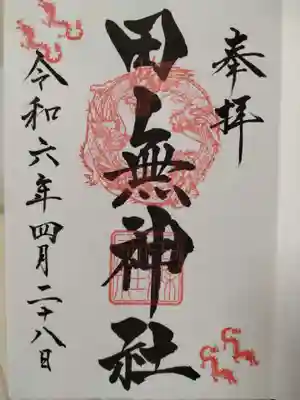 奉拝
田無神社
令和六年四月二十八日